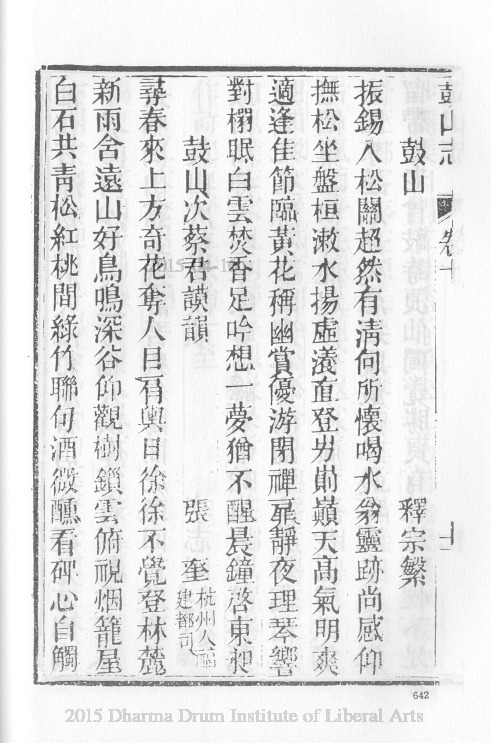 鼓山志 卷十 十一
鼓山 釋宗繁
振錫入松關超然有淸向所懷喝水翁靈跡尚感仰
撫松坐盤桓漱水揚虛瀁直登屴崱巔天高氣明爽
適逢佳節臨黃花稱幽賞優游閉禪扉靜夜理琴響
對榻眠白雲焚香足吟想一夢猶不醒晨鐘啓東
鼓山次蔡君謨韻 張奎 杭州人 建都司
尋春來上方奇花奪人目肩輿日徐徐不覺登林麓
新雨含遠山好鳥鳴深谷仰觀樹鎖雲俯視烟籠屋
白石共靑松紅桃間綠竹聯句酒微醺看碑心自觸
642
2015 Dharma Drum Institute of Liberal Arts